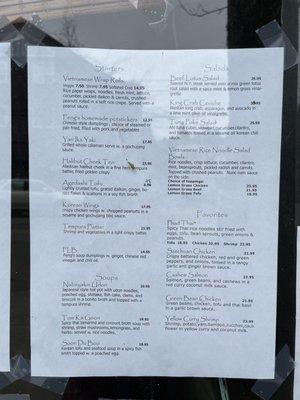 Starters
Vietnamese Wrap Rolls
Veggie 7.50 Shrimp 7.95 Softshell Crab 14.95
Rice paper wraps, noodles, fresh mint, lettuce,
cucumber, pickled daikon & carrots, crushed
peanuts rolled in a soft rice crepe. Served with a
peanut sauce.
Feng's homemade potstickers
Chinese style dumplings, choice of steamed or
pan fried, filled with pork and vegetables
Yari Ika Yaki 17.95
Grilled whole calamari serve w. a gochujang
sauce.
Halibut Cheek Tem
Alaskan halibut cheek in a fine herb tempura
batter, fried golden crispy
Agedashi Tofu
Lightly crusted tofu, grated daikon, ginger, bonito
flakes & scallions in a soy fish broth
Korean Wings 17.95
Crispy chicken wings w. chopped peanuts in a
sesame and gochujang bbq sauce.
Tempura Platter 21.95
Shrimp and vegetables in a light crispy batter
FLB 14.95
Feng's soup dumplings w. ginger, chinese red
vinegar and chili oil.
Soups
Nabeyakin Udon 20.95
Japanese style hot pot with udon noodles,
poached egg, shiitake, fish cake, clams, and
broccoli in a bonito broth and topped with a
tempura shrimp.
Tom Ka Gnoor 19.95
Spicy thai lemonms and coconut broth soup with
shrimp, straw mushrooms, lemongrass, and
herbs. served w. rice noodles.
Soon Du Bou 19.95
Korean tofu and seafood soup in a spicy fish
broth topped w. a poached egg.
Salads
Beef Lotus Salad 26.95
Seared N.Y. steak served over a mix green lotus
root salad with a spicy mint & green grass vinaigrette
King Crab Ceviche
Alaskan king crab, asparagus, and avocado in
a lime mint olive oil vinaigrette.
Tuna Poke Salad 25.95
Ahi tuna cubes, seaweed, cucumber, cilantro,
and tomato tossed in a sesame oil korean chili
sauce.
Vietnamese Rice Noodle Salad
Bowls
Rice noodles, crisp lettuce, cucumber, cilantro,
mint, beansprouts, pickled radish and carrots.
Topped with crushed peanuts. Nuoc nam sauce
on the side.
Choice of toppings:
Lemon Grass Chicken 20.95
Lemon Grass Beef 21.95
Lemon Grass Tofu 19.95
Favorites
Phad Thai*
Spicy Thai rice noodles stir fried with
eggs, tofu, bean sprouts, green onions &
peanuts.
Tofu 18.95 Chicken 20.95 Shrimp 22.95
Szechuan Chicken 21.95
Crispy battered chicken, red and green
peppers, and onions, tossed in a tangy
garlic and ginger brown sauce.
Cashew Salmon 25.95
Salmon, green beans, and cashews in a
red curry coconut milk sauce.
Green Bean Chicken 21.95
Green beans, chicken, tofu and thai basil
in a garlic brown sauce.
Yellow Curry Shrimp 23.95
Shrimp, potato,yam,bamboo,zucchini,cauli
flower in yellow curry and coconut milk.